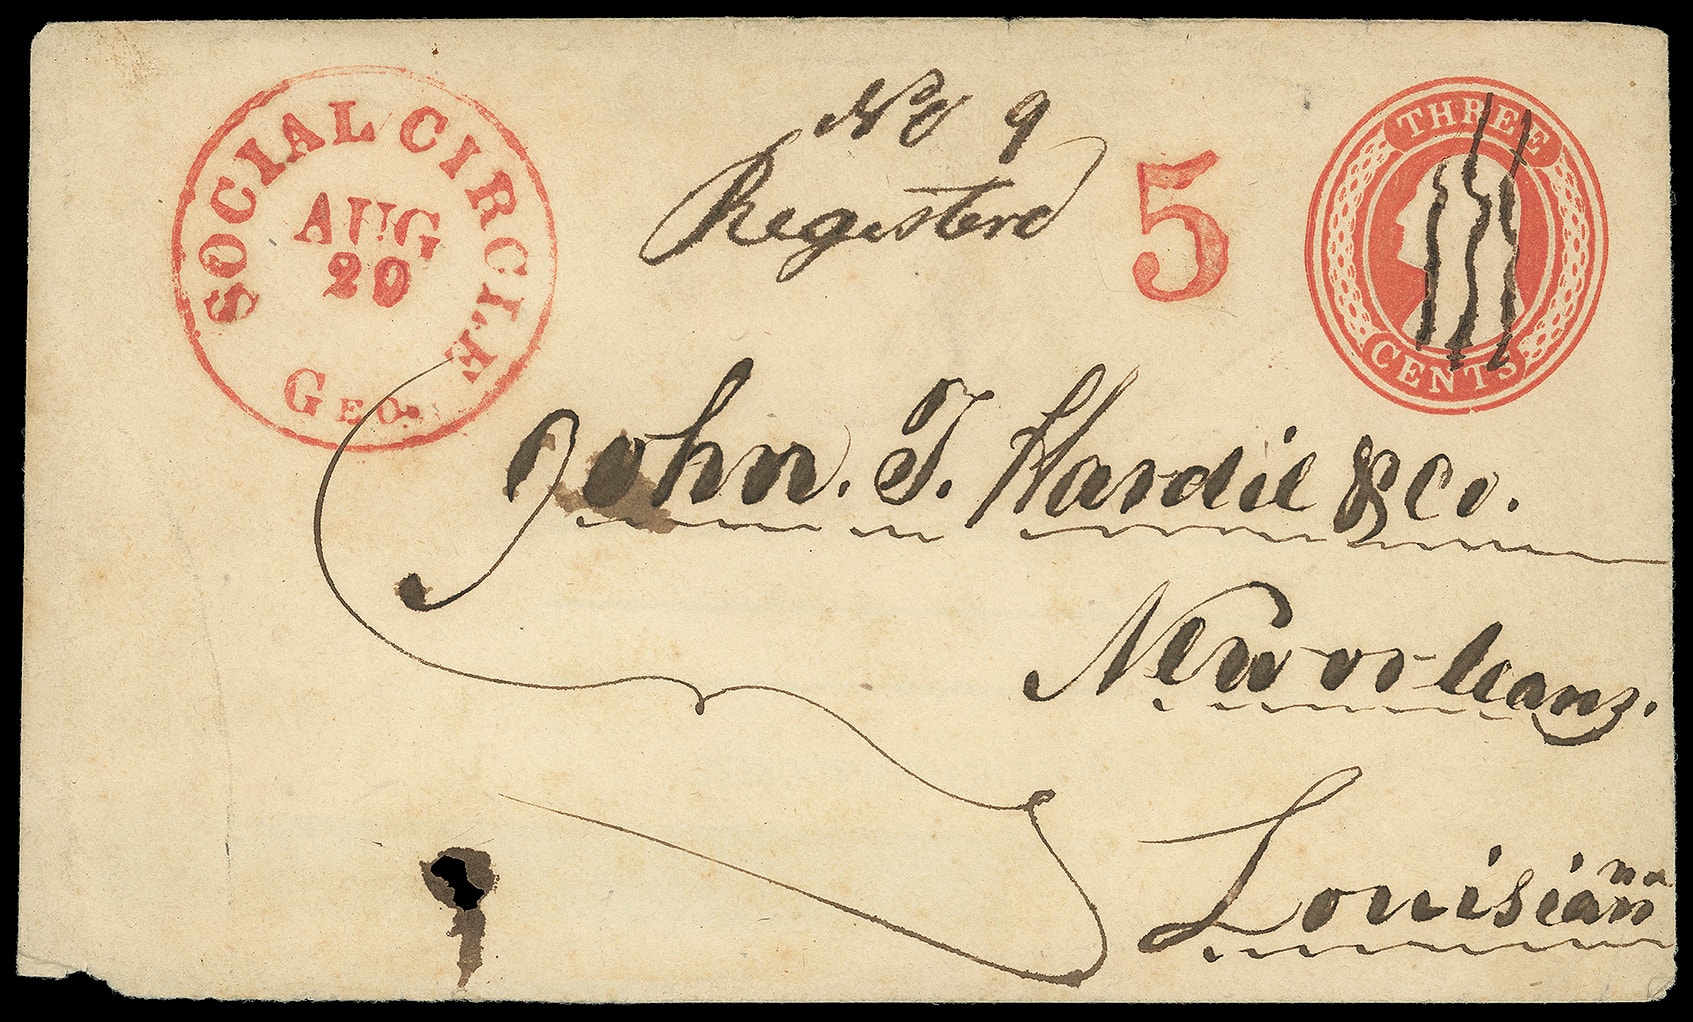 SOCIAL CIRCLE
AUG
20
GEO.
No 9
Registerd
5
THREE
CENTS
John. T. Hardie & Co.
New orleans.
Louisianna